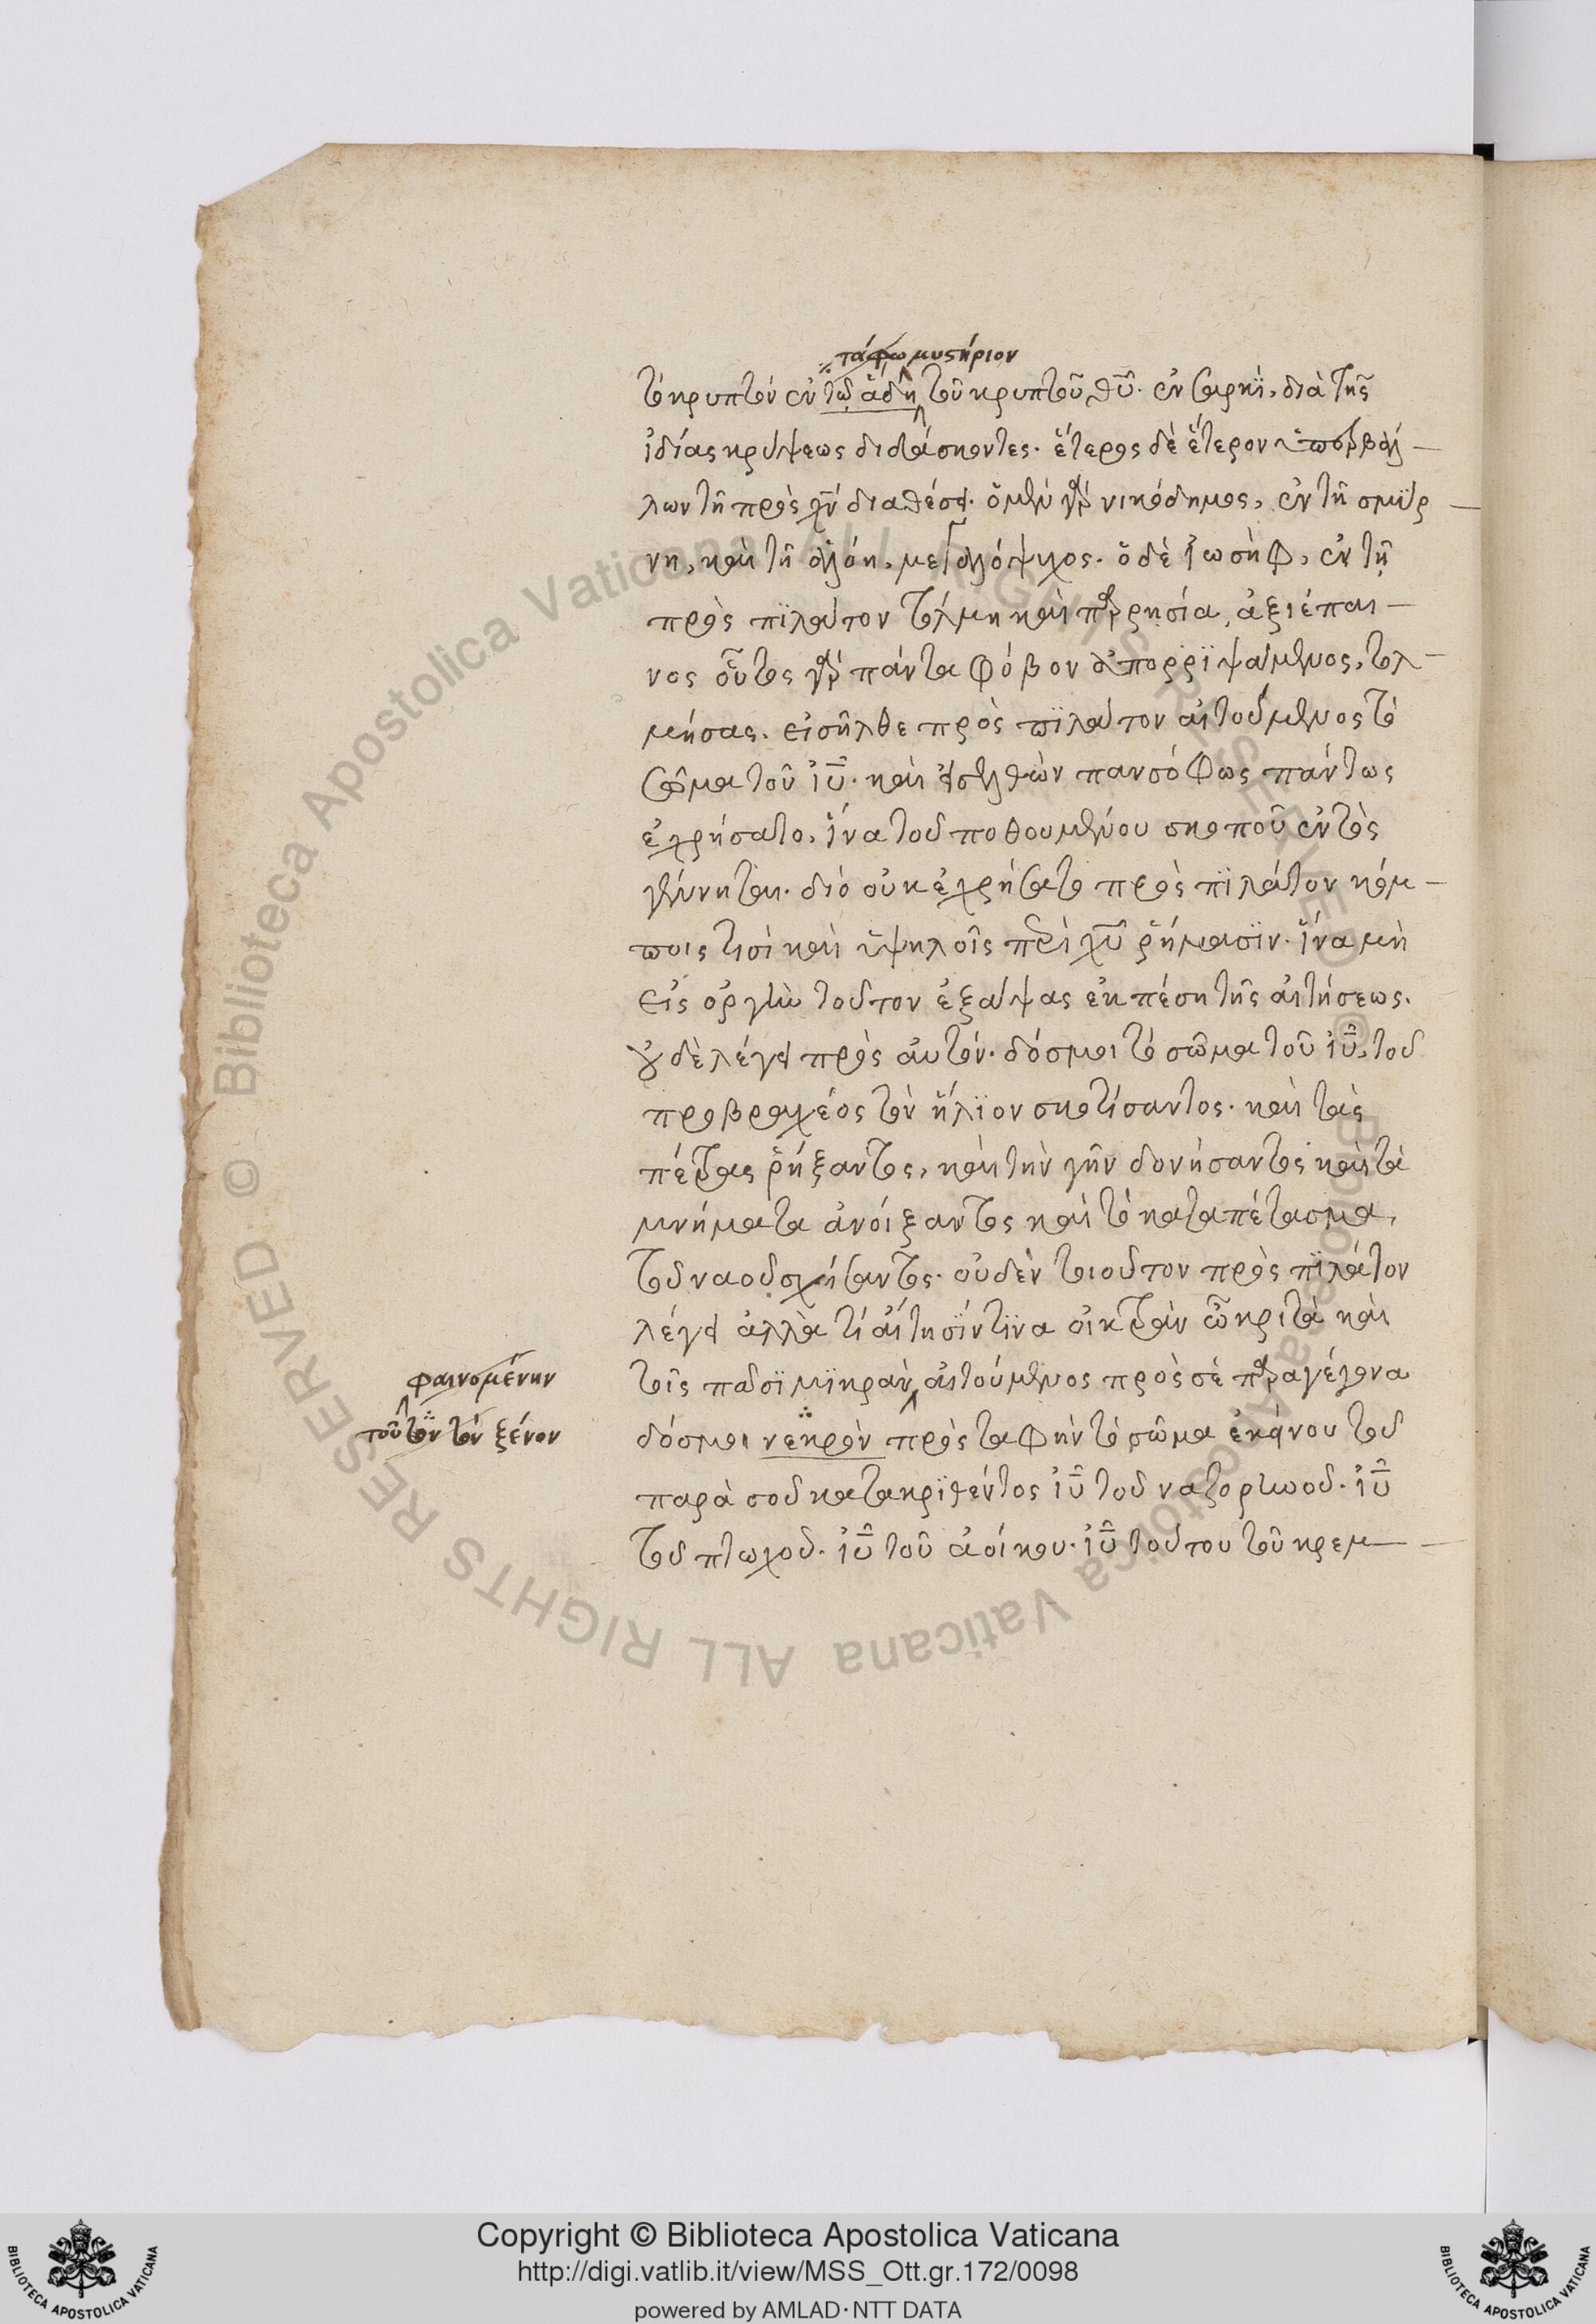 τάφω μυστήριον
τὸ κρυπτὸν ἐν τῷ ἅδη τοῦ κρυπτοῦ θ̅υ̅. ἐν σαρκὶ, διὰ τῆς
ἰδίας κρύψεως διδάσκοντες. ἕτερος δὲ ἕτερον ὑπερβάλ
λων τῆ πρὸς χ̅ν̅ διαθέσει. ὁ μὲν γὰρ νικόδημος, ἐν τῆ σμύρ
νη, καὶ τῆ ἀλόη, μεγαλόψυχος. ὁ δὲ ἰωσὴφ, ἐν τῆ
πρὸς πϊλάτον τόλμη καὶ παρρησία, ἀξιέπαι
νος οὗτος γὰρ πάντα φόβον ἀπορρϊψάμενος, τολ
μήσας. εἰσῆλθε πρὸς πϊλάτον αἰτούμενος τὸ
σῶμα τοῦ ἰ̅υ̅. καὶ εἰσελθὼν πανσόφως πάντως
ἐχρήσατο, ἵνα τοῦ ποθουμένου σκοποῦ ἐντὸς
γένηται. διὸ οὐκ ἐχρήσατο πρὸς πϊλάτον κόμ
ποις τισὶ καὶ ὑψηλοῖς περὶ χ̅υ̅ ῥήμασϊν. ἵνα μὴ
εἰς ὀργὴν τοῦτον ἐξάψας ἐκπέση τῆς αἰτήσεως.
οὐδὲ λέγει πρὸς αὐτόν. δόσμοι τὸ σῶμα τοῦ ἰ̅υ̅, τοῦ
προβραχέος τὸν ἥλϊον σκοτίσαντος. καὶ τὰς
πέτρας ῥήξαντος, καὶ τὴν γῆν δονήσαντος καὶ τὰ
μνήματα ἀνοίξαντος καὶ τὸ καταπέτασμα,
τοῦ ναοῦ σχήσαντος. οὐδὲν τοιοῦτον πρὸς πϊλάτον
λέγει ἀλλὰ τί αἴτησϊν τϊνα οἰκτρὰν ὦ κριτὰ καὶ
φαινομένην
τοῖς πᾶσϊ μϊκρὰν αἰτούμενος πρὸς σὲ παραγέγονα
τοῦτον τὸν ξένον
δόσμοι νεκρὸν πρὸς ταφὴν τὸ σῶμα ἐκείνου τοῦ
παρὰ σοῦ κατακρϊθέντος ἰ̅υ̅ τοῦ ναζοραίου. ἰ̅υ̅
τοῦ πτωχοῦ. ἰ̅υ̅ τοῦ ἀοίκου. ἰ̅υ̅ τούτου τοῦ κρεμ
Copyright © Biblioteca Apostolica Vaticana
http://digi.vatlib.it/view/MSS_Ott.gr.172/0098
powered by AMLAD·NTT DATA
BIBLIOTECA APOSTOLICA VATICANA
BIBLIOTECA APOSTOLICA VATICANA
© Biblioteca Apostolica Vaticana ALL RIGHTS RESERVED
© Biblioteca Apostolica Vaticana ALL RIGHTS RESERVED